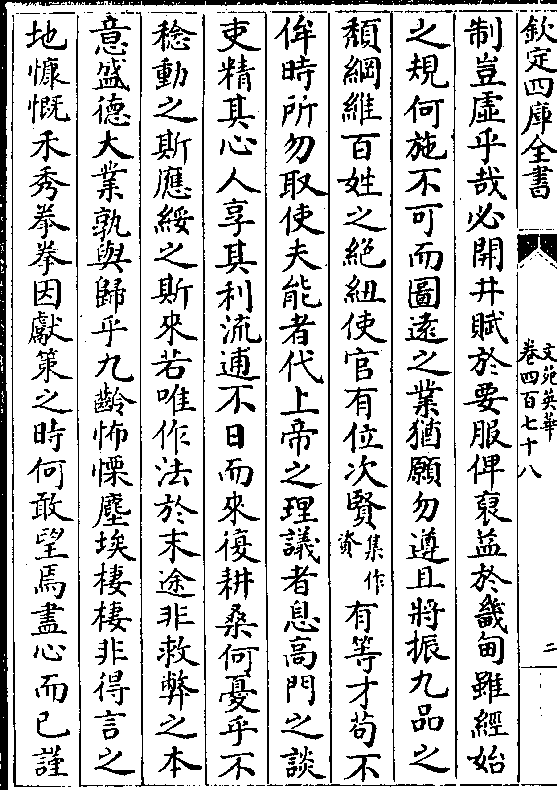 欽定四庫全書
文苑英華
卷四百七十八
二
制豈虛乎哉必開井賦於要服俾裒益於畿甸雖經始
之規何施不可而圖遠之業猶願勿遵且將振九品之
頽綱維百姓之絶紐使官有位次賢集作資有等才苟不
侔時所勿取使夫能者代上帝之理議者息高門之談
吏精其心人享其利流逋不日而來復耕桑何憂乎不
稔動之斯應綏之斯來若唯作法於末途非救弊之本
意盛德大業孰與歸乎九齡怖慄塵埃棲棲非得言之
地慷慨禾秀拳拳因獻策之時何敢望焉盡心而已謹